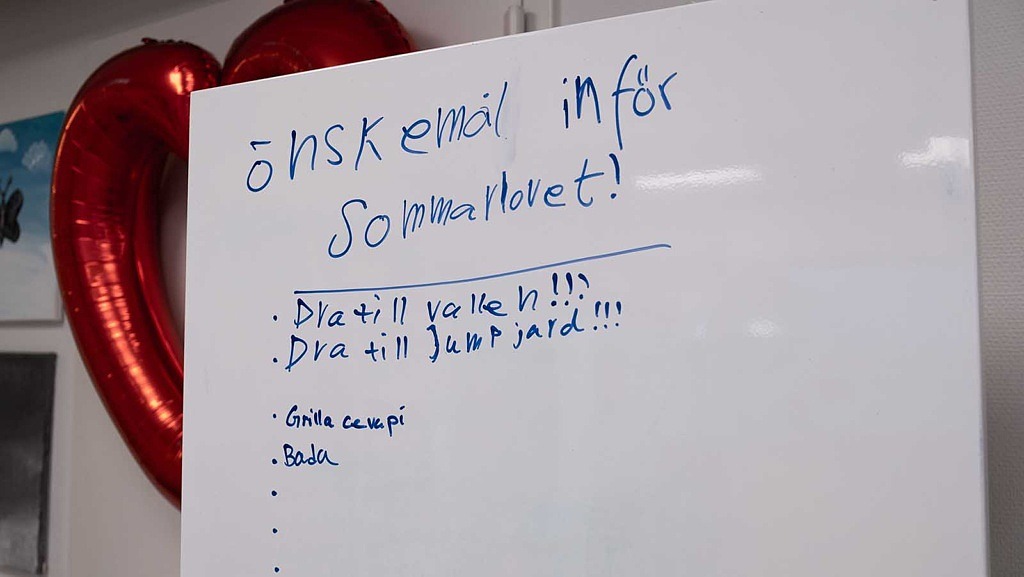 önskemål inför
Sommarlovet!
• Dra till vallen!!!
• Dra till Jumpjard!!!
• Grilla cevapi
• Bada
•
•
•